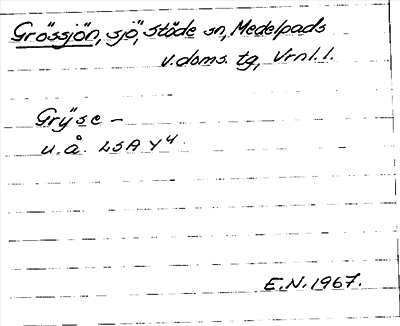 Grössjön, sjö, Stöde sn, Medelpads
v. doms. tg, Vrnl. l.
Grÿse –
u. å. LSA Y4.
E.N. 1967.